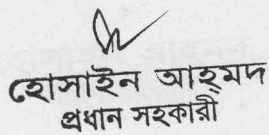 হোসাইন আহমদ
প্রধান সহকারী